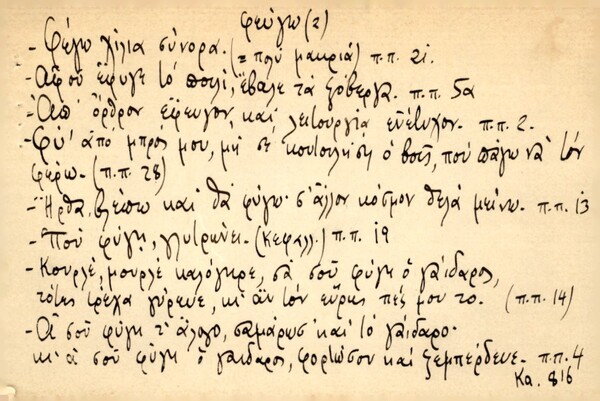 φεύγω (2)
- Φεύγω χίλια σύνορα. (= πολύ μακριά) π.π. 2i.
- Αφού έφυγε το πουλί, έβαλε τα ξόβεργα. π.π. 5α
- Απ' όρθρον έφευγον, και λειτουργία ευέτυχον. π.π. 2.
- Φύ' από μπρός μου, μη σε κουτουλήση ο βους, που πάγω να τον
φέρω. (π.π. 28)
- Ήρθα, βλέπω και θα φύγω· σ' άλλον κόσμον θελά μείνω. π.π. i3
- Που φύγη, γλυτρώνει. (Κεφαλλ.) π.π. i9
- Κουρλέ, μουρλέ καλόγερε, σα σου φύγη ο γάιδαρος,
τότες τρέχα γύρευε, κι' αν τον εύρης πές μου το. (π.π. 14)
- Α σου φύγη τ' άλογο, σαμάρωσ' και το γάιδαρο·
κι' α σου φύγη ο γάιδαρος, φορτώσου και ξεμπέρδευε. π.π. 4
Κα. 816